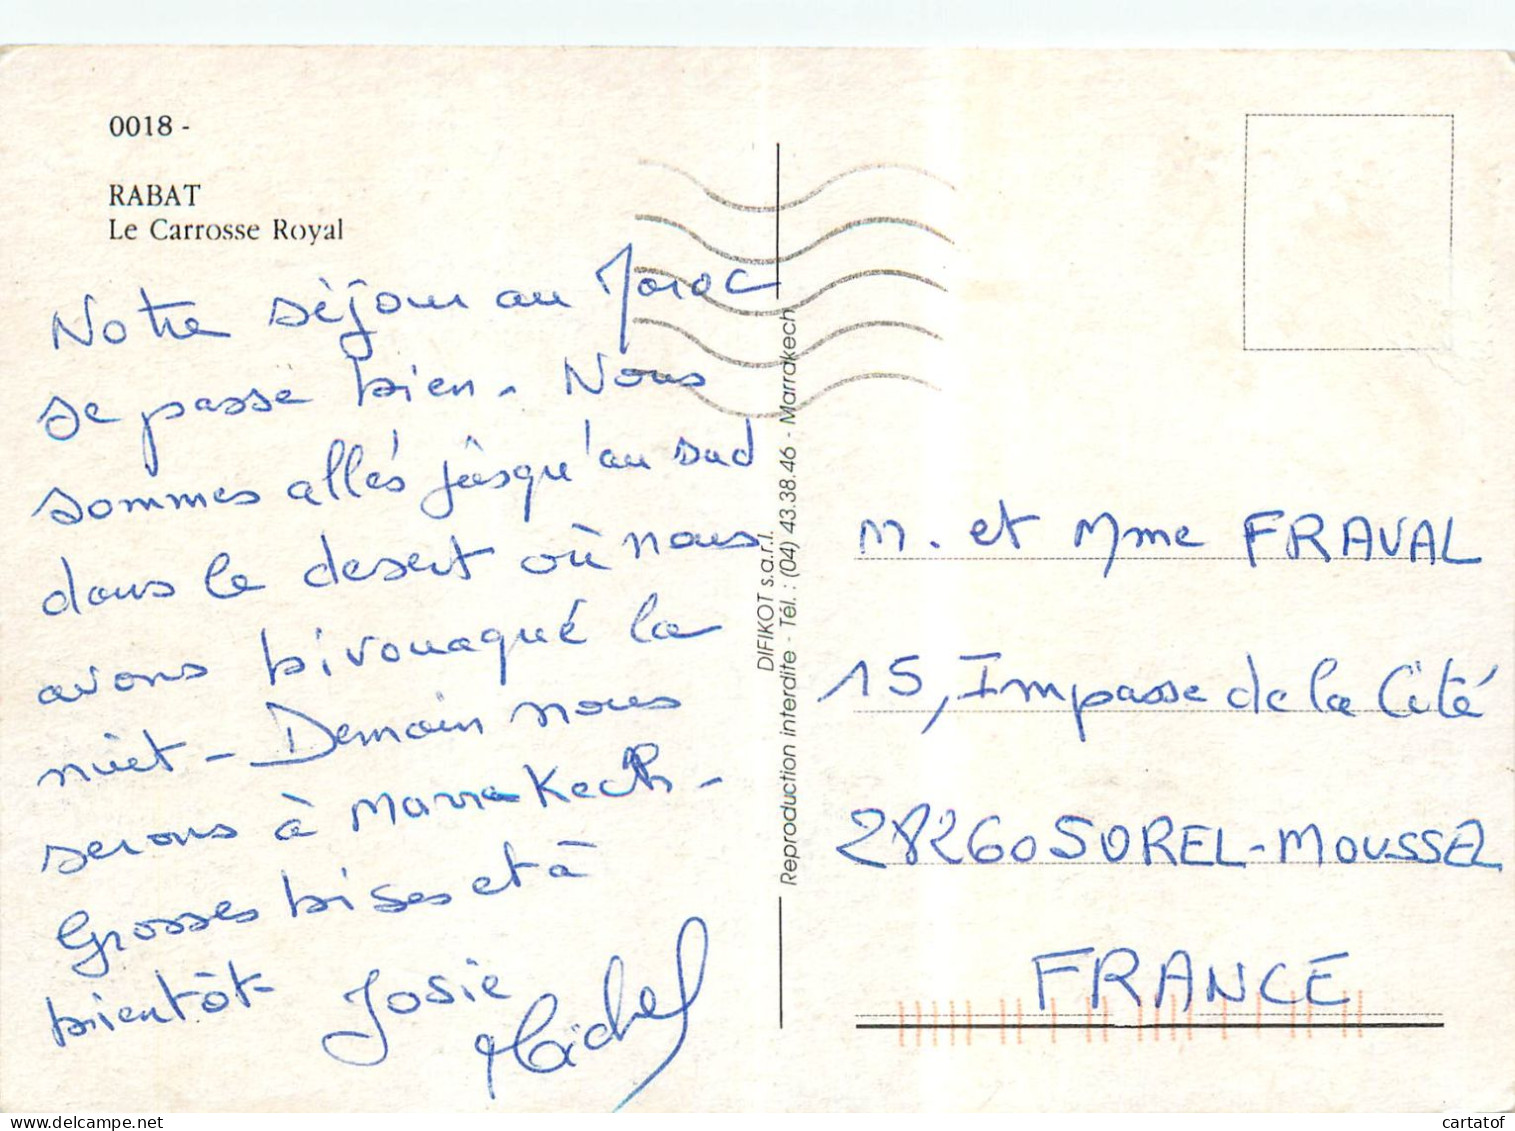 0018 -
RABAT
Le Carrosse Royal
Notre séjour au Maroc
se passe bien - Nous
sommes allés jusqu'au sud
dans le desert où nous
avons bivouaqué la
nuit - Demain nous
serons à Marrakech -
Grosses bises et à
bientôt - Josie
Michel
DIFIKOT s.a.r.l.
Reproduction interdite - Tél. : (04) 43.38.46 - Marrakech
M. et Mme FRAVAL
15, Impasse de la Cité
28260 SOREL-MOUSSEL
FRANCE
cartatof